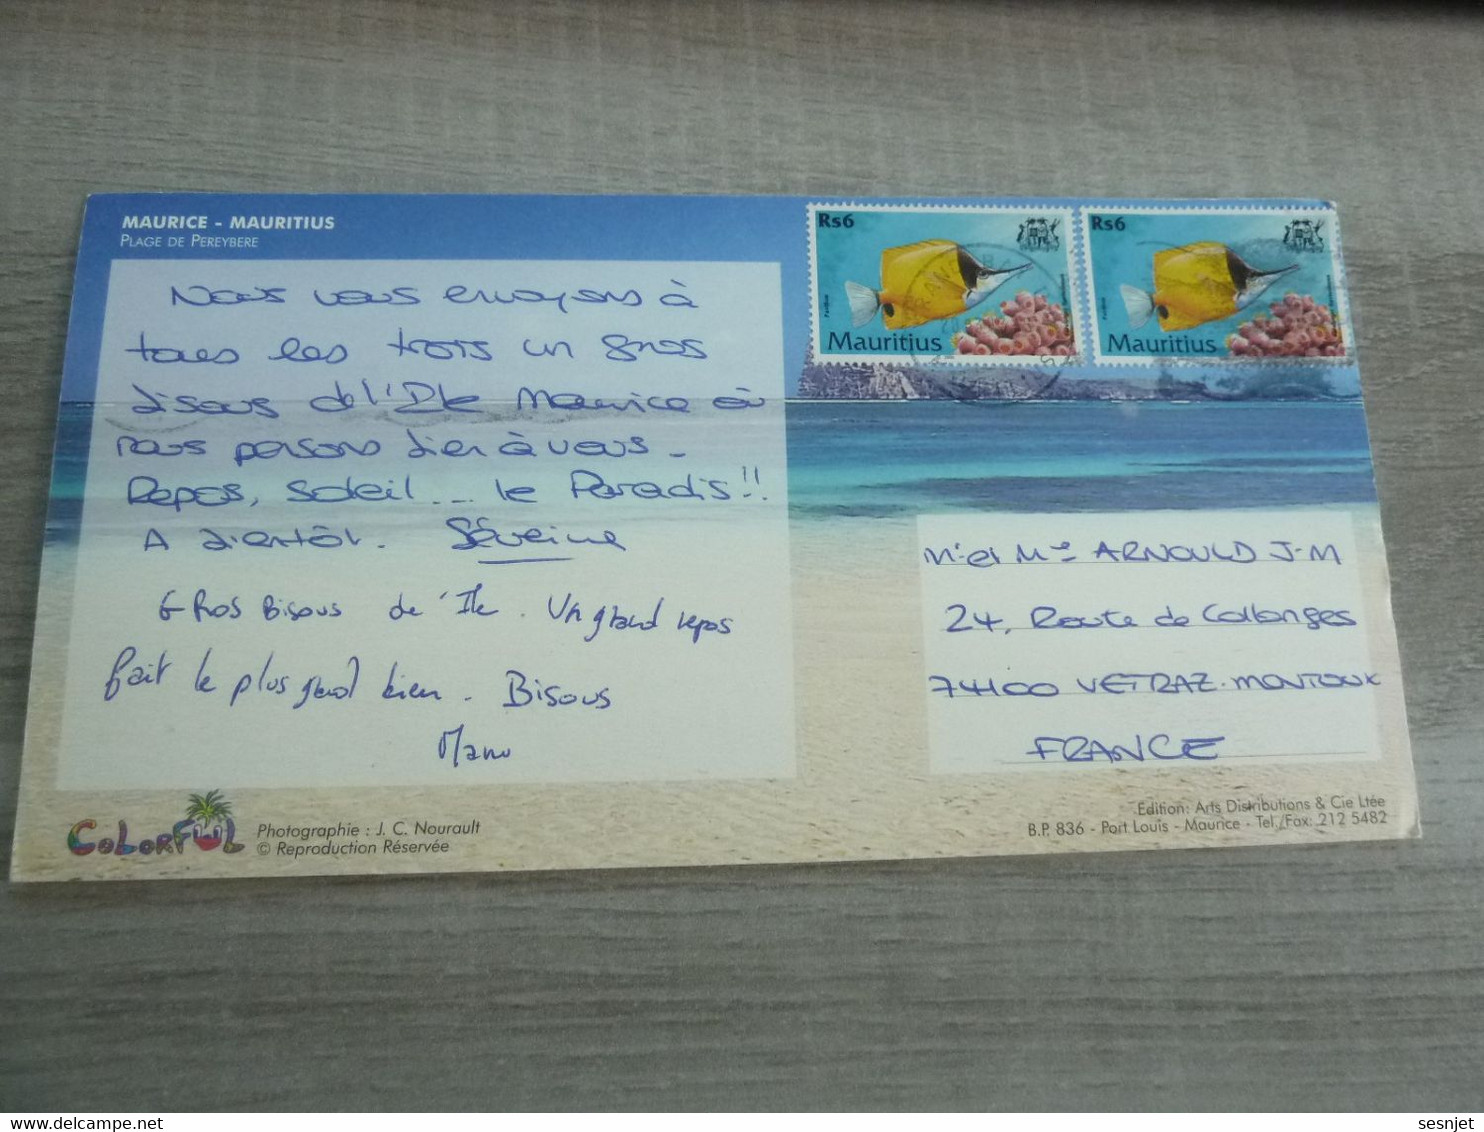 MAURICE - MAURITIUS
PLAGE DE PEREYBERE
Nous vous envoyons à
tous les trois un gros
bisous de l'Ile Maurice où
nous pensons bien à vous.
Repos, soleil... le Paradis!!
A bientôt. Séverine
Gros Bisous de l'Ile. Un grand repos
fait le plus grand bien. Bisous
Manu
Rs6
Mauritius
Rs6
Mauritius
Mr et Mme ARNOULD J-M
24, Route de Collonges
74100 VETRAZ-MONTOUX
FRANCE
COLORFUL
Photographie : J. C. Nourault
© Reproduction Réservée
Edition: Arts Distributions & Cie Ltée
B.P. 836 - Port Louis - Maurice - Tel./Fax: 212 5482
sesnjet